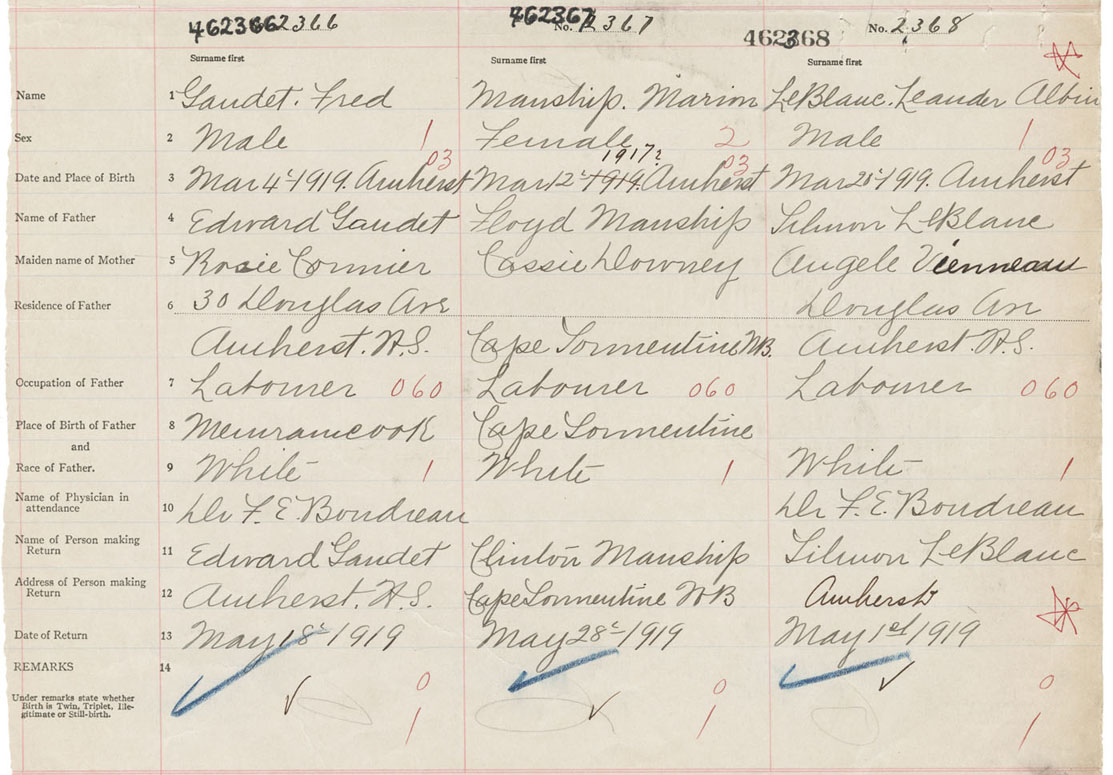 462366 2366 462367 No. 2367 462368 No. 2368
Surname first Surname first Surname first
Name 1 Gaudet. Fred Manship. Marion LeBlanc. Leander Albin
Sex 2 Male 1 Female 2 Male 1
1917? 03 03 03
Date and Place of Birth 3 Mar 4th 1919. Amherst Mar 12th 1919. Amherst Mar 20th 1919. Amherst
Name of Father 4 Edward Gaudet Floyd Manship Silmon LeBlanc
Maiden name of Mother 5 Rosie Cormier Cassie Downey Angele Vienneau
Residence of Father 6 30 Douglas Ave Douglas Ave
Amherst. N.S. Cape Tormentine NB. Amherst. N.S.
Occupation of Father 7 Labourer 060 Labourer 060 Labourer 060
Place of Birth of Father 8 Memramcook Cape Tormentine
and
Race of Father. 9 White 1 White 1 White 1
Name of Physician in
attendance 10 Dr F. E. Boudreau Dr F. E. Boudreau
Name of Person making
Return 11 Edward Gaudet Clinton Manship Silmon LeBlanc
Address of Person making
Return 12 Amherst. N.S. Cape Tormentine NB Amherst
Date of Return 13 May 18th 1919 May 28th 1919 May 1st 1919
REMARKS 14
0 0 0
Under remarks state whether
Birth is Twin, Triplet, Ille-
gitimate or Still-birth.
1 1 1